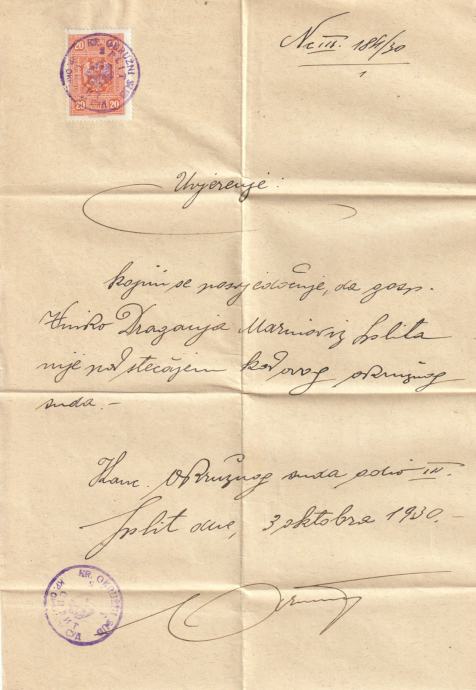 20 20
20 20
KR. OKRUŽNI SUD
Nc III. 184/30
1
Uvjerenje:
kojim se posvjedočuje, da gosp.
Vinko Draganja Marinov iz Splita
nije pod stečajem kod ovog okružnog
suda.-
Kanc. okružnog suda odio III.
Split dne, 3 oktobra 1930.-
KR. OKRUŽNI SUD